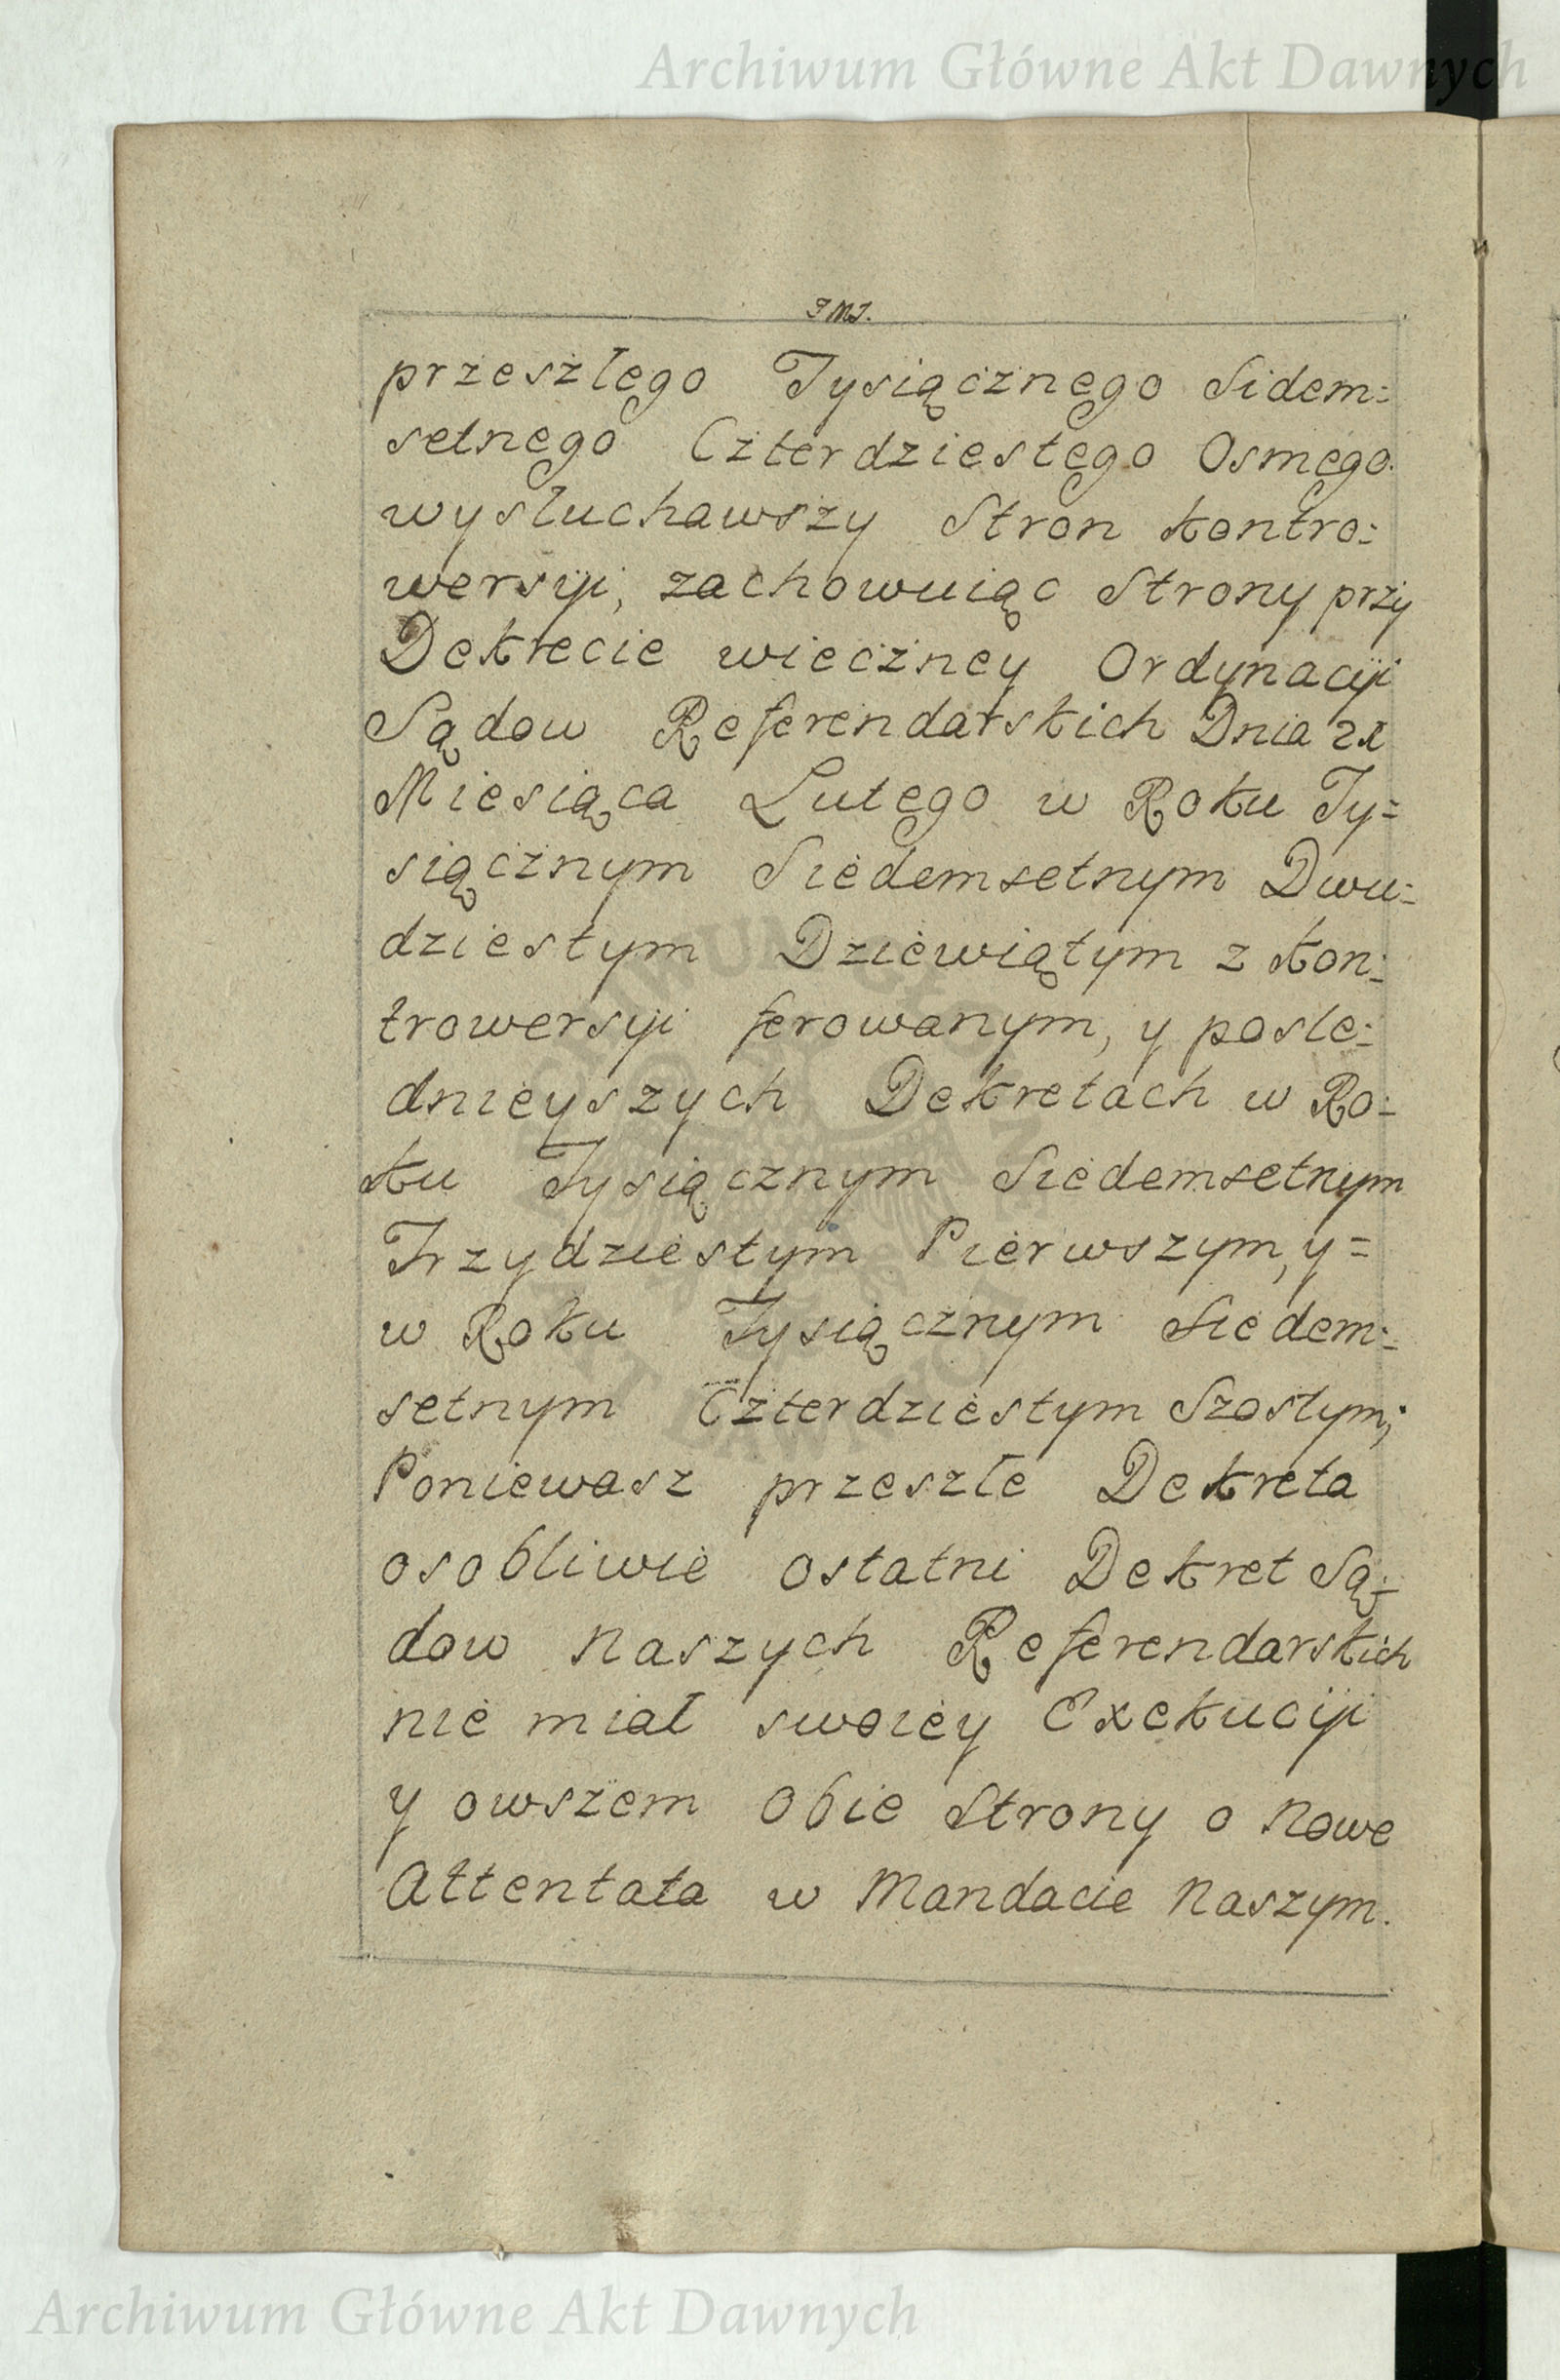 Archiwum Główne Akt Dawnych
przeszłego Tysiącznego Sidem:
setnego Czterdziestego Osmego.
wysłuchawszy Stron kontro:
wersyi, zachowuiąc Strony przy
Dekrecie wieczney Ordynacyi
Sądow Referendarskich Dnia 21
Miesiąca Lutego w Roku Ty=
siącznym Siedemsetnym Dwu:
dziestym Dziewiątym z kon:
trowersyi ferowanym, y posle:
dnieyszych Dekretach w Ro:
ku Tysiącznym Siedemsetnym
Trzydziestym Pierwszym, y=
w Roku Tysiącznym Siedem:
setnym Czterdziestym Szostym;
Poniewasz przeszłe Dekreta
osobliwie ostatni Dekret Są:
dow Naszych Referendarskich
nie miał swoiey Exekucyi
y owszem Obie Strony o Nowe
Attentata w Mandacie Naszym.
Archiwum Główne Akt Dawnych